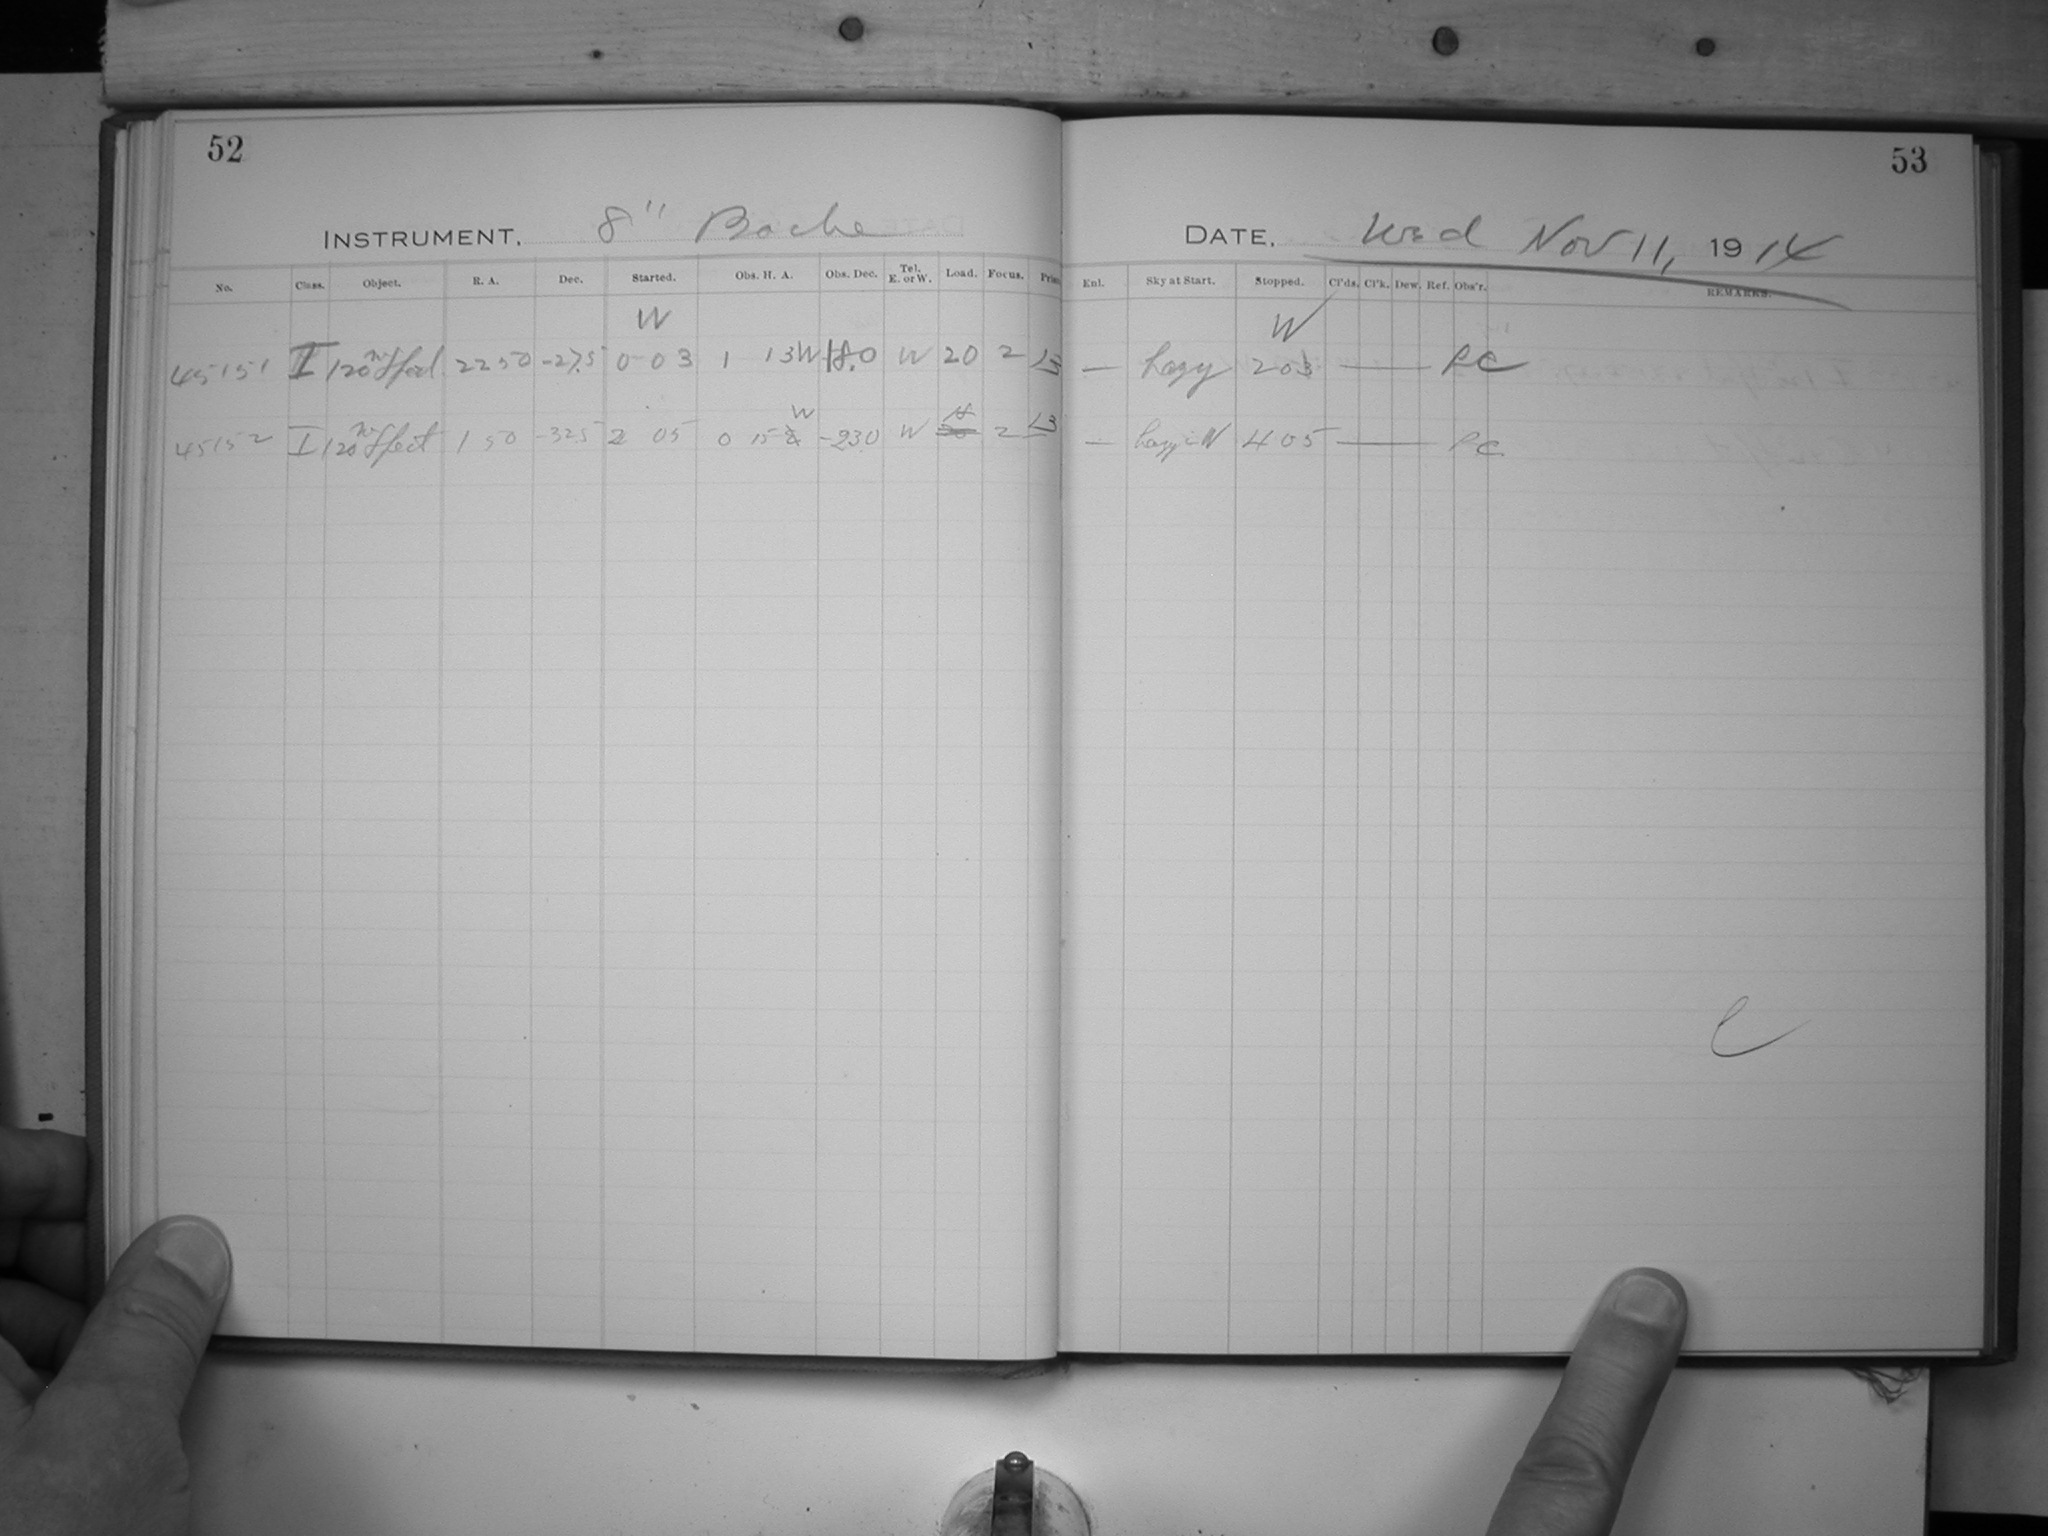 52
INSTRUMENT. 8" Bache
No. Class. Object. R. A. Dec. Started. Obs. H. A. Obs. Dec. Tel. E. or W. Load. Focus. Prism
W
45151 I 120m Spect 22 50 -27.5 0 03 1 13W 18.0 W 20 2 13
45152 I 120m Spect 1 50 -32.5 2 05 0 15 W -23.0 W 2 13
53
DATE. Wed Nov 11, 1914
Enl. Sky at Start. Stopped. Cl'ds. Cl'k. Dew. Ref. Obs'r. REMARKS.
W
— hazy 2 03 — RC
— hazy in N 4 05 — RC
C